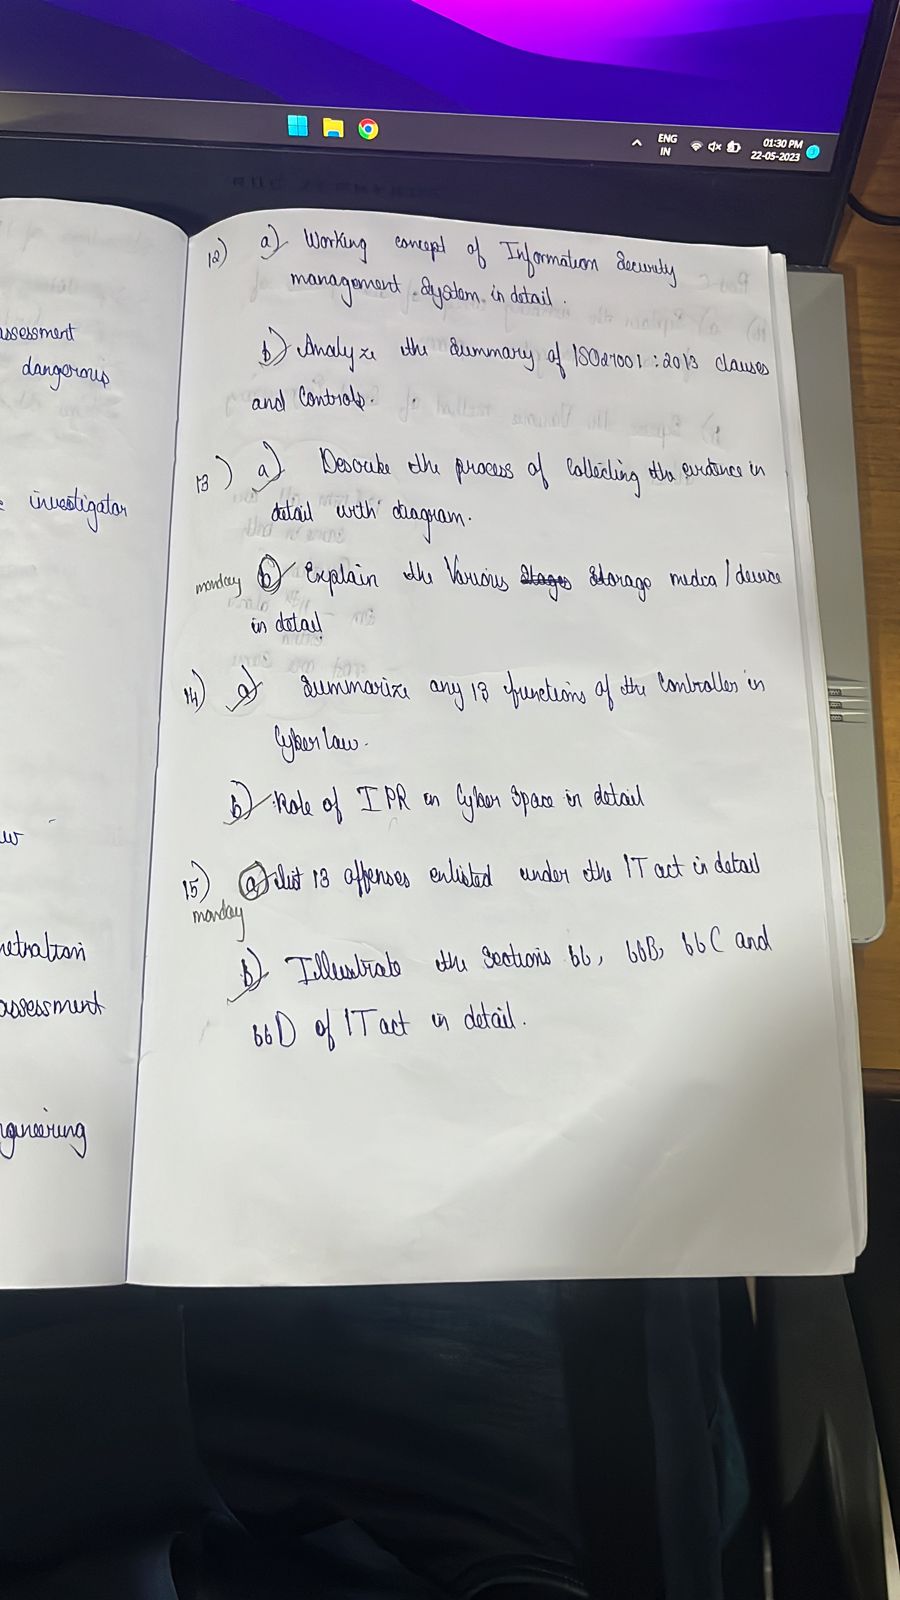 ENG
IN
01:30 PM
22-05-2023
assessment
dangerous
investigator
assessment
12) a) Working concept of Information Security
management System in detail.
b) Analyze the Summary of ISO27001:2013 clauses
and Controls.
13) a) Describe the process of Collecting the evidence in
detail with diagram.
monday b) Explain the Various Stages Storage media / device
in detail
14) a) Summarize any 13 functions of the Controller in
Cyber law.
b) Role of IPR in Cyber Space in detail
15) a) List 13 offenses enlisted under the IT act in detail
monday
b) Illustrate the Sections 66, 66B, 66C and
66D of IT act in detail.